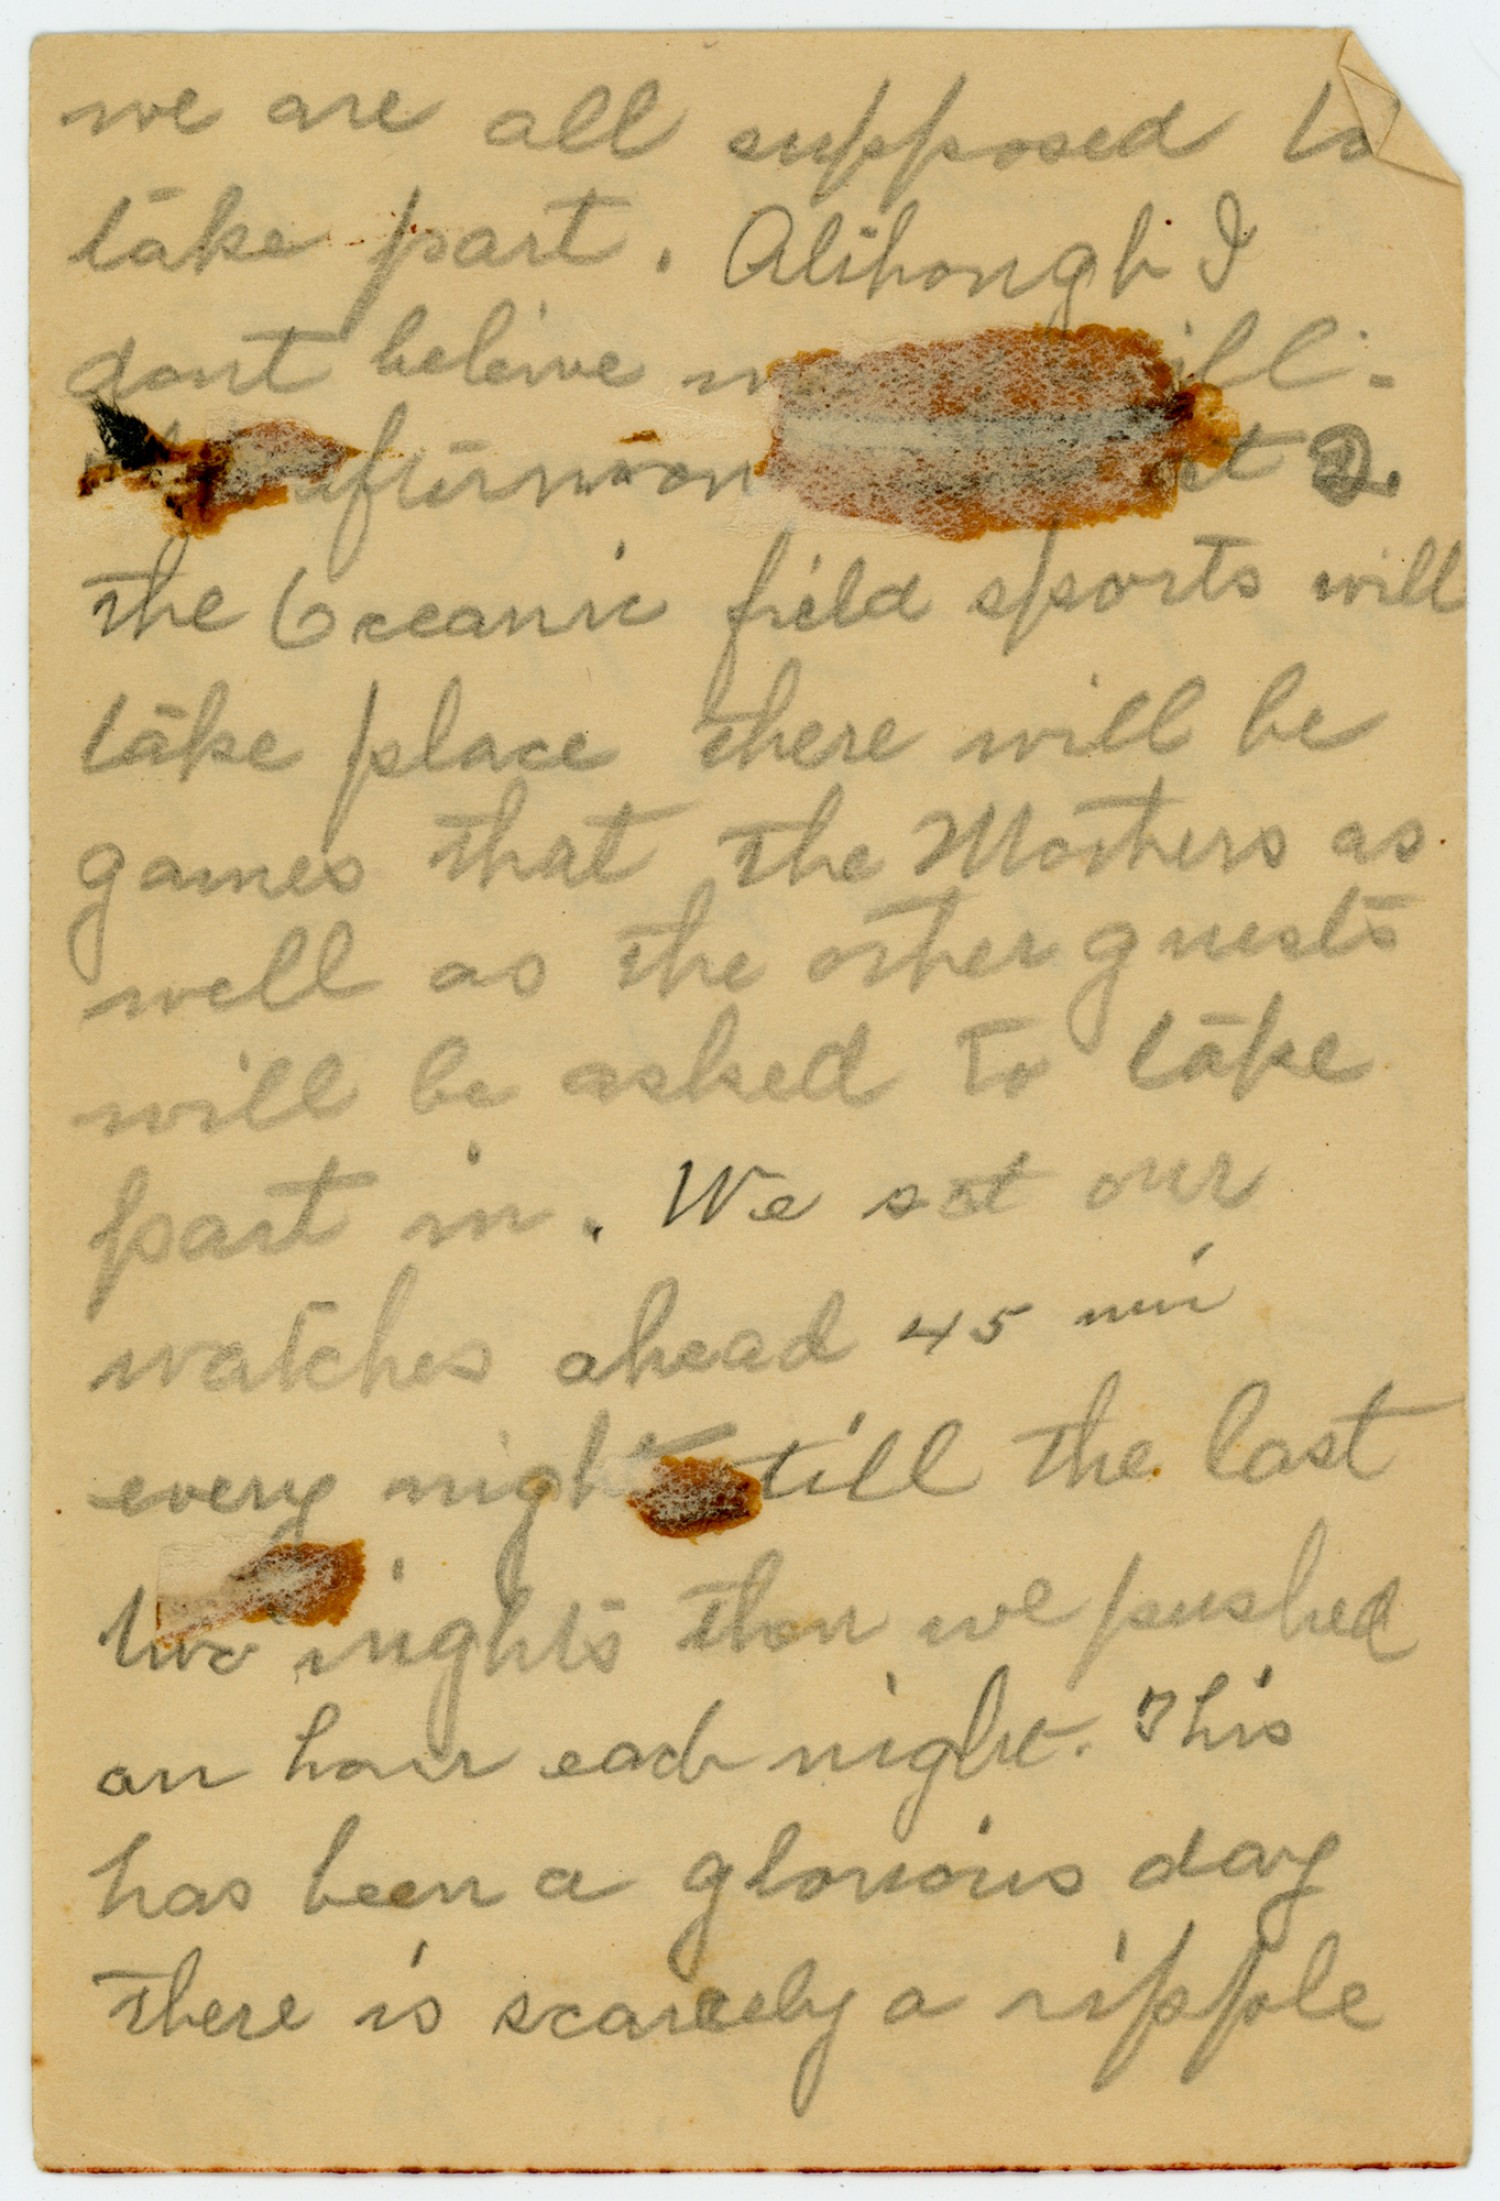 we are all supposed to
take part. Although I
dont beleive
afternoon at 2.
the Oceanic field sports will
take place there will be
games that the Mothers as
well as the other guests
will be asked to take
part in. We set our
watches ahead 45 min
every night till the last
two nights then we pushed
an hour each night. This
has been a glorious day
there is scarcely a ripple